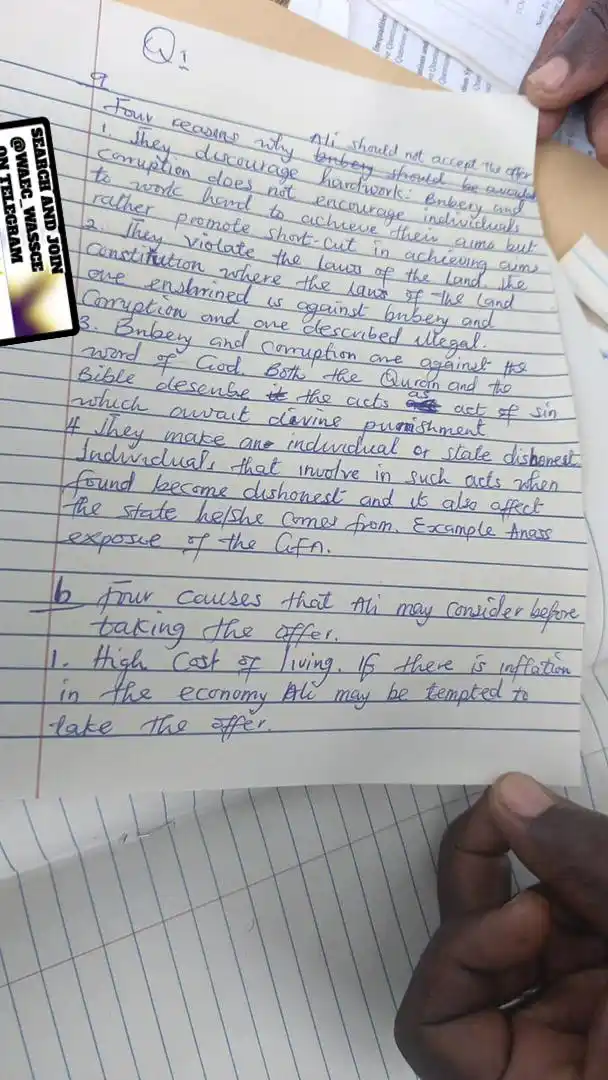 Q1
a
Four reasons why Ali should not accept the offer
bribery should be avoided
1. They discourage hardwork: Bribery and
corruption does not encourage individuals
to work hard to achieve their aims but
rather promote short-cut in achieving aims
2. They violate the laws of the land. The
Constitution where the laws of the land
are enshrined is against bribery and
Corruption and are described illegal.
3. Bribery and corruption are against the
word of God. Both the Quran and the
Bible describe it the acts as act of sin
which await divine punishment
4 They make an individual or state dishonest
Individuals that involve in such acts when
found become dishonest and it also affect
the state he/she comes from. Example Anass
expose of the GFA.
b Four causes that Ali may consider before
taking the offer.
1. High Cost of living. If there is inflation
in the economy Ali may be tempted to
take the offer.
SEARCH AND JOIN
@WAEC_WASSCE
ON TELEGRAM